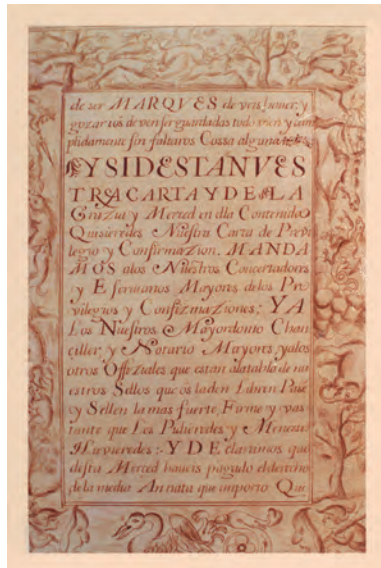 de ser MARQVES de veis haver, y
gozar vos deven ser guardadas todo vien y cum
plidamente sin faltaros Cossa alguna
Y SI DESTA NVES
TRA CARTA Y DE LA
Grazia y Merced en ella Contenida
Quisieredes Nuestra Carta de Previ
legio y Confirmazion, MANDA
MOS a los Nuestros Concertadores
y Escrivanos Mayores de los Pre
vilegios y Confirmaziones; Y A
Los Nuestros Mayordomo Chan
ciller y Notario Mayores y a los
otros Offiziales que estan a la tabla de nu
estros Sellos que os la den Libren Pase
y Sellen la mas fuerte, Firme y vas
tante que Les Pidieredes y Menester
Huvieredes; Y DEclaramos que
desta Merced haveis pagado el derecho
de la media Annata que importo Qui